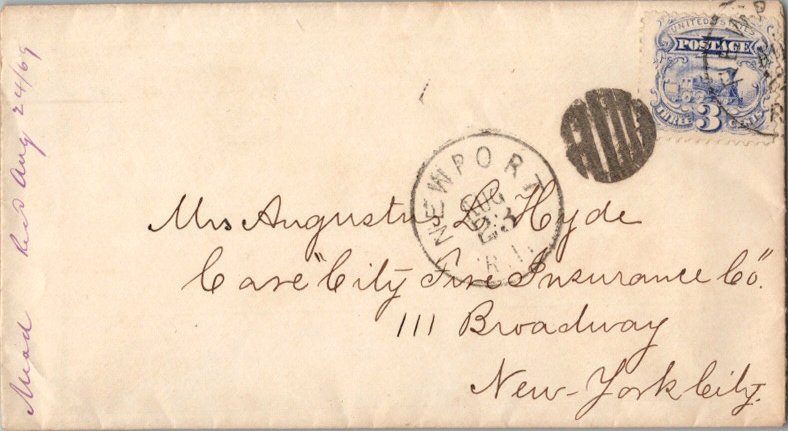 UNITED STATES
POSTAGE
THREE 3 CENTS
NEWPORT
AUG
23
R.I.
Mrs Augustus L. Hyde
Care "City Fire Insurance Co".
111 Broadway
New-York City.
Recd Aug 24/69